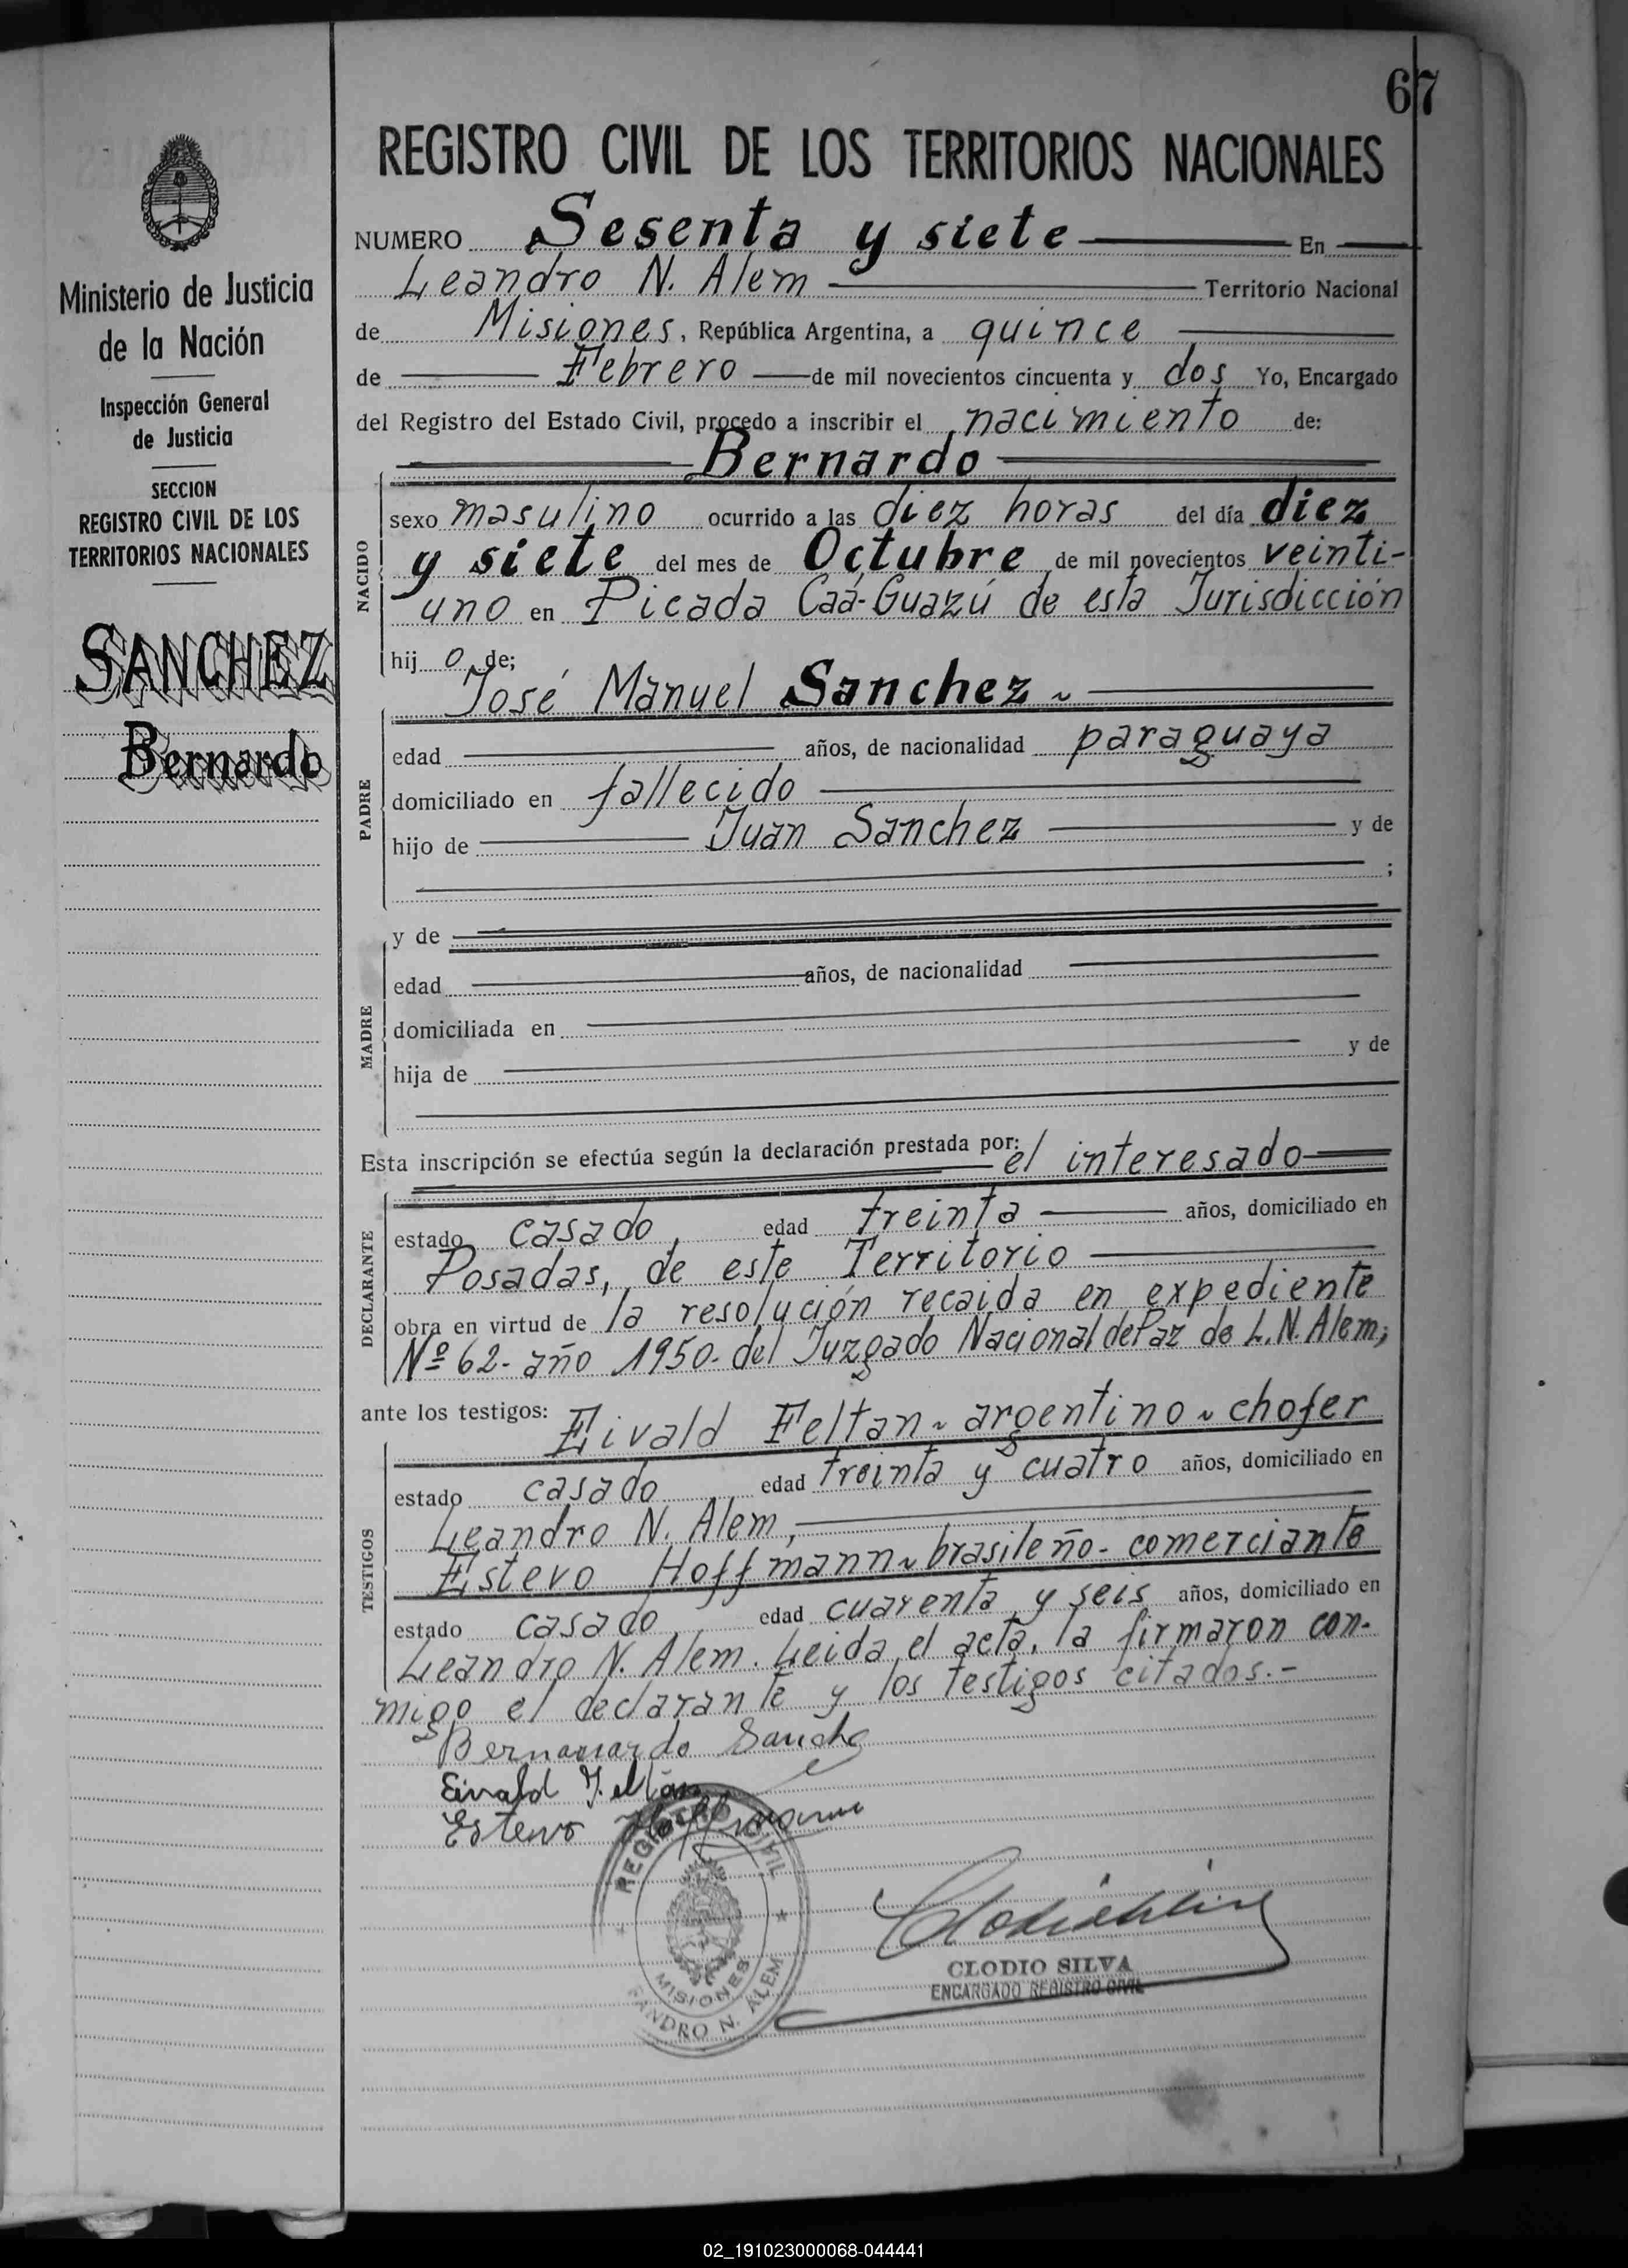 67
REGISTRO CIVIL DE LOS TERRITORIOS NACIONALES
Ministerio de Justicia
de la Nación
Inspección General
de Justicia
SECCION
REGISTRO CIVIL DE LOS
TERRITORIOS NACIONALES
SANCHEZ
Bernardo
NUMERO Sesenta y siete En
Leandro N. Alem Territorio Nacional
de Misiones, República Argentina, a quince
de Febrero de mil novecientos cincuenta y dos Yo, Encargado
del Registro del Estado Civil, procedo a inscribir el nacimiento de:
Bernardo
NACIDO
sexo masulino ocurrido a las diez horas del día diez
y siete del mes de Octubre de mil novecientos veinti-
uno en Picada Caá-Guazú de esta Jurisdicción
hij o de;
José Manuel Sanchez
PADRE
edad años, de nacionalidad paraguaya
domiciliado en fallecido
hijo de Juan Sanchez y de
;
MADRE
y de
edad años, de nacionalidad
domiciliada en
hija de y de
Esta inscripción se efectúa según la declaración prestada por: el interesado
DECLARANTE
estado casado edad treinta años, domiciliado en
Posadas, de este Territorio
obra en virtud de la resolución recaida en expediente
Nº 62- año 1950- del Juzgado Nacional de Paz de L. N. Alem;
ante los testigos: Eivald Feltan ~ argentino ~ chofer
TESTIGOS
estado casado edad treinta y cuatro años, domiciliado en
Leandro N. Alem,
Estevo Hoffmann ~ brasileño - comerciante
estado casado edad cuarenta y seis años, domiciliado en
Leandro N. Alem. Leida el acta, la firmaron con-
migo el declarante y los testigos citados.-
Eivald Feltan
Estevo Hoffmann
REGISTRO CIVIL
MISIONES
LEANDRO N. ALEM
CLODIO SILVA
ENCARGADO REGISTRO CIVIL
02_191023000068-044441